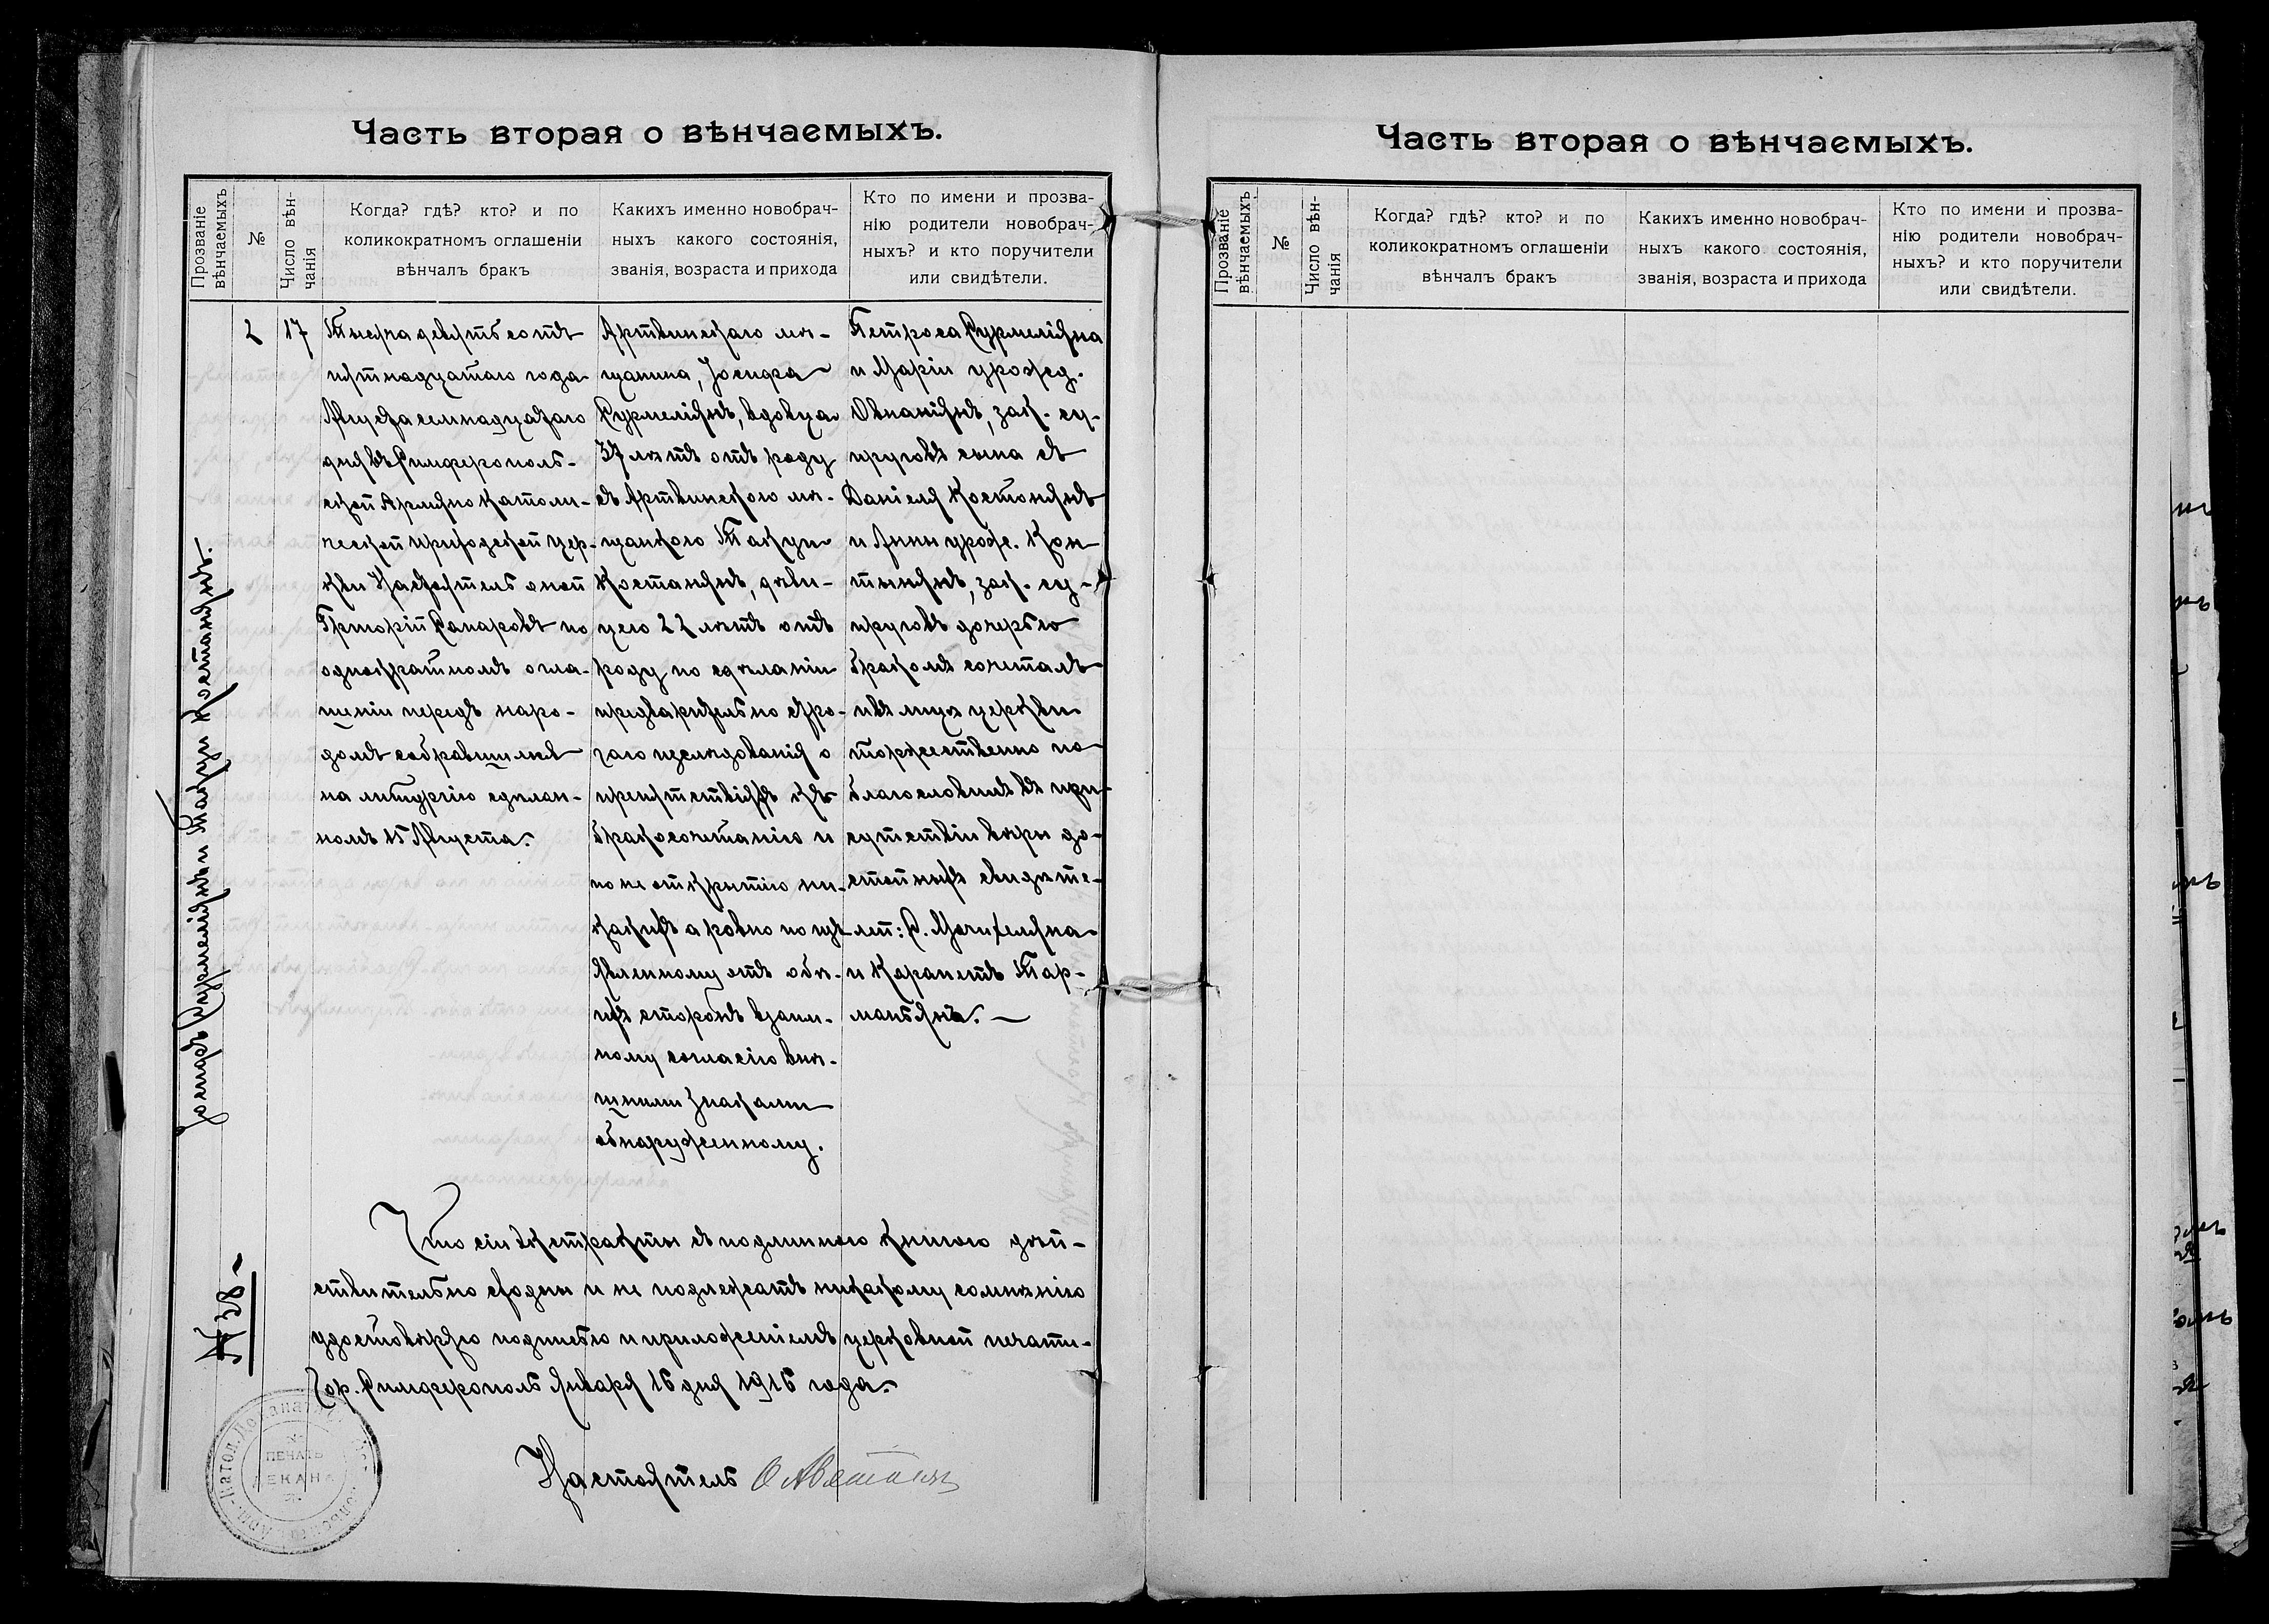 Часть вторая о вѣнчаемыхъ.
Прозваніе вѣнчаемыхъ
№
Число вѣн-
чанія
Когда? гдѣ? кто? и по
коликократномъ оглашеніи
вѣнчалъ бракъ
Какихъ именно новобрач-
ныхъ какого состоянія,
званія, возраста и прихода
Кто по имени и прозва-
нію родители новобрач-
ныхъ? и кто поручители
или свидѣтели.
Іосифъ Сурмеліянъ и Такуи Костанянъ.
2
17
Тысяча девятьсотъ
пятнадцатаго года
Августа семнадцатаго
дня въ Симферополь-
ской Армяно Католи-
ческой приходской цер-
кви Настоятель оной
Григорій Сапаровъ по
однократномъ огла-
шеніи передъ наро-
домъ собравшимся
на литургію сдѣлан-
номъ 15 Августа.
Артвинскаго мѣ-
щанина, Іосифа
Сурмеліянъ, вдовца
37 лѣтъ отъ роду
съ Артвинскою мѣ-
щанкою Такуи
Костанянъ, дѣви-
цею 22 лѣтъ отъ
роду по сдѣланіи
предварительно стро-
гаго изслѣдованія о
препятствіяхъ къ
бракосочетанію и
по не открытію ни-
какихъ а ровно по изъ-
явленному отъ обѣ-
ихъ сторонъ взаим-
ному согласію внѣ-
шними знаками
обнаруженному.
Петроса Сурмеліяна
и Маріи урожд.
Овнаніянъ, зак. су-
пруговъ сына съ
Даніеля Костонянъ
и Анны урож.
зак. су-
пруговъ дочерью
бракомъ сочеталъ
и въ лицѣ церкви
торжественно по-
благословилъ въ при-
сутствіи вѣры до-
стойныхъ свидѣте-
лей: С.
и Карапетъ Тар-
маньянъ. —
Что сіи экстракты съ подлинною книгою дѣй-
ствительно сходны и не подлежатъ никакому сомнѣнію
удостовѣряю подписью и приложеніемъ церковной печати.
Гор. Симферополь Января 16 дня 1916 года.
№ 38
Настоятель
ПЕЧАТЬ
ДЕКАНА
Часть вторая о вѣнчаемыхъ.
Прозваніе вѣнчаемыхъ
№
Число вѣн-
чанія
Когда? гдѣ? кто? и по
коликократномъ оглашеніи
вѣнчалъ бракъ
Какихъ именно новобрач-
ныхъ какого состоянія,
званія, возраста и прихода
Кто по имени и прозва-
нію родители новобрач-
ныхъ? и кто поручители
или свидѣтели.